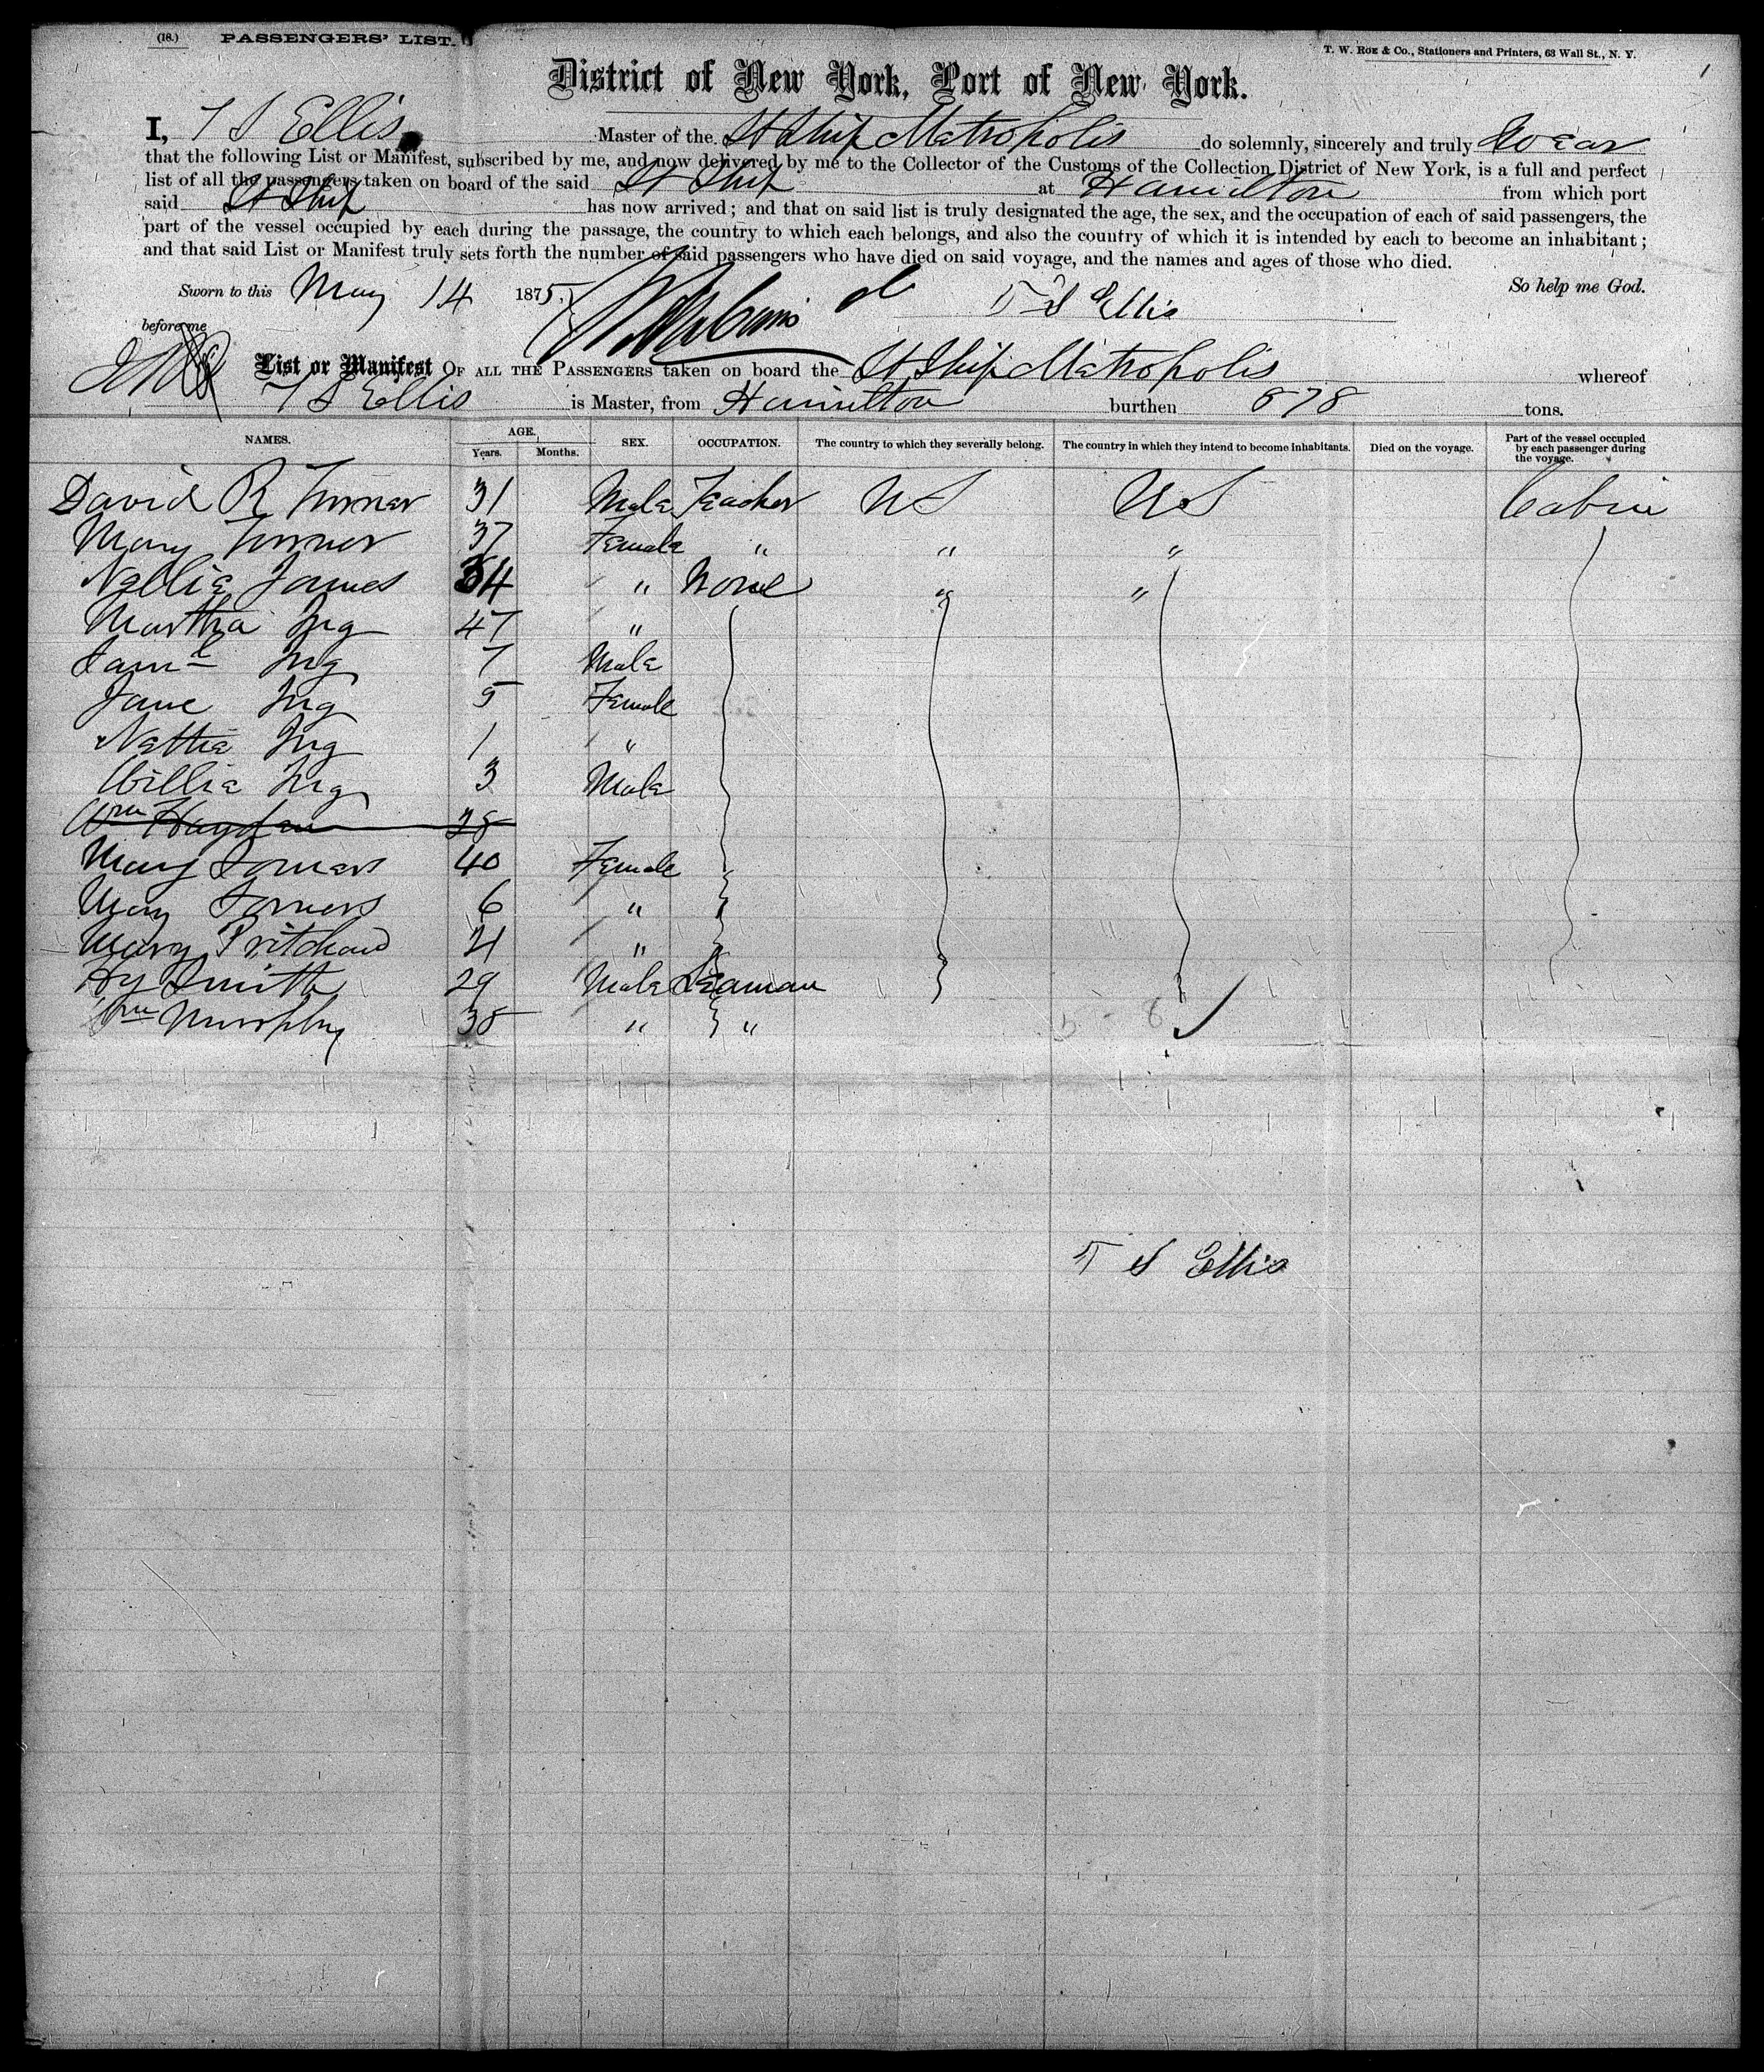 (18.) PASSENGERS' LIST.
T. W. Roe & Co., Stationers and Printers, 63 Wall St., N. Y.
District of New York, Port of New York.
I, T S Ellis Master of the St Ship Metropolis do solemnly, sincerely and truly Swear
that the following List or Manifest, subscribed by me, and now delivered by me to the Collector of the Customs of the Collection District of New York, is a full and perfect
list of all the passengers taken on board of the said St Ship at Hamilton from which port
said St Ship has now arrived; and that on said list is truly designated the age, the sex, and the occupation of each of said passengers, the
part of the vessel occupied by each during the passage, the country to which each belongs, and also the country of which it is intended by each to become an inhabitant;
and that said List or Manifest truly sets forth the number of said passengers who have died on said voyage, and the names and ages of those who died.
Sworn to this May 14 1875. T S Ellis So help me God.
before me
List or Manifest OF ALL THE PASSENGERS taken on board the St Ship Metropolis whereof
T S Ellis is Master, from Hamilton burthen 878 tons.
NAMES. AGE. Years. Months. SEX. OCCUPATION. The country to which they severally belong. The country in which they intend to become inhabitants. Died on the voyage. Part of the vessel occupied by each passenger during the voyage.
David R Turner 31 Male Teacher US US Cabin
Mary Turner 37 Female " " "
Nellie James 34 " None " "
Martha Ing 47 "
Saml Ing 7 Male
Jane Ing 5 Female
Nettie Ing 1 "
Willie Ing 3 Male
Wm Hayden 28
Mary Somers 40 Female
Mary Somers 6 "
Mary Pritchard 21 "
Hy Smith 29 Male Seaman
Wm Murphy 38 " "
T S Ellis